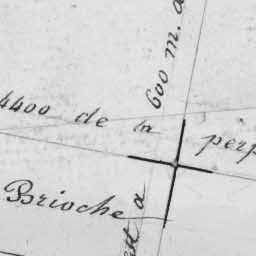 600 m. a
4400 de la perp
Brioche